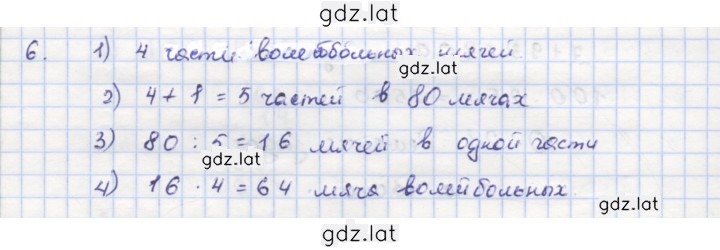 gdz.lat
6. 1) 4 части волейбольных мячей
gdz.lat
2) 4 + 1 = 5 частей в 80 мячах
3) 80 : 5 = 16 мячей в одной части
gdz.lat
4) 16 · 4 = 64 мяча волейбольных
gdz.lat